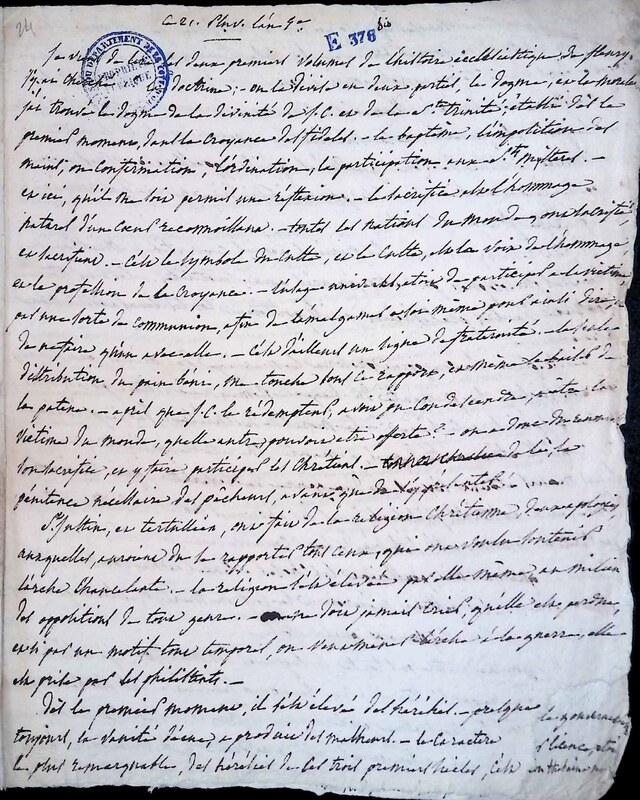 24
Ce 21. Pluv. l'an 9e
E 378 bis
les deux premiers volumes de l'histoire ecclésiastique de fleury.
doctrine; on la divise en deux parties, le dogme, et la morale
j'ai trouvé le dogme de la divinité de J.C. et de la Ste trinité, établi dès le
premier moment, dans la Croyance des fideles. - le baptême, l'imposition des
mains, ou Confirmation, l'ordination, la participation aux Sts mystères. -
et ici, qu'il me soit permis une réflexion. - le sacrifice est l'hommage
naturel d'un Coeur reconnoissant. - toutes les nations du Monde, ont sacrifié,
et sacrifient. - C'est le symbole du Culte, et le Culte, est la voix de l'hommage
et la profession de la Croyance. - l'usage universel de participer à la victime,
par une sorte de Communion, afin de s'amalgamer à soi même pour ainsi dire,
de ne faire qu'un avec elle. - C'est d'ailleurs un signe de fraternité. - la seule
distribution du pain béni, me touche sous ce rapport, et même le baiser de
la patène. - après que J.C. le rédempteur, avoit pu Condescendre, à être la
victime du monde, quelle autre pouvoit être offerte? - on a donc
son sacrifice, et y faire participer les Chrétiens. - de là, la
pénitence nécessaire des pécheurs, avant que de s'y présenter. -
St Justin, et tertullien, ont fait de la religion Chrétienne, deux apologies
auxquelles, auroient dû se rapporter tous Ceux, qui ont voulu soutenir
l'arche Chancelante. - la religion s'est élevée par elle même, au milieu
des oppositions de tout genre. - on ne doit jamais crier qu'elle est perdue,
et si par un motif tout temporel, on veut mener l'arche à la guerre, elle
est prise par les philistins. -
Dès le premier moment, il s'est élevé des hérésies. - presque
toujours, la vanité déçue, a produit des malheurs. - le Caractère
le plus remarquable, des hérésies de Ces trois premiers siècles, C'est